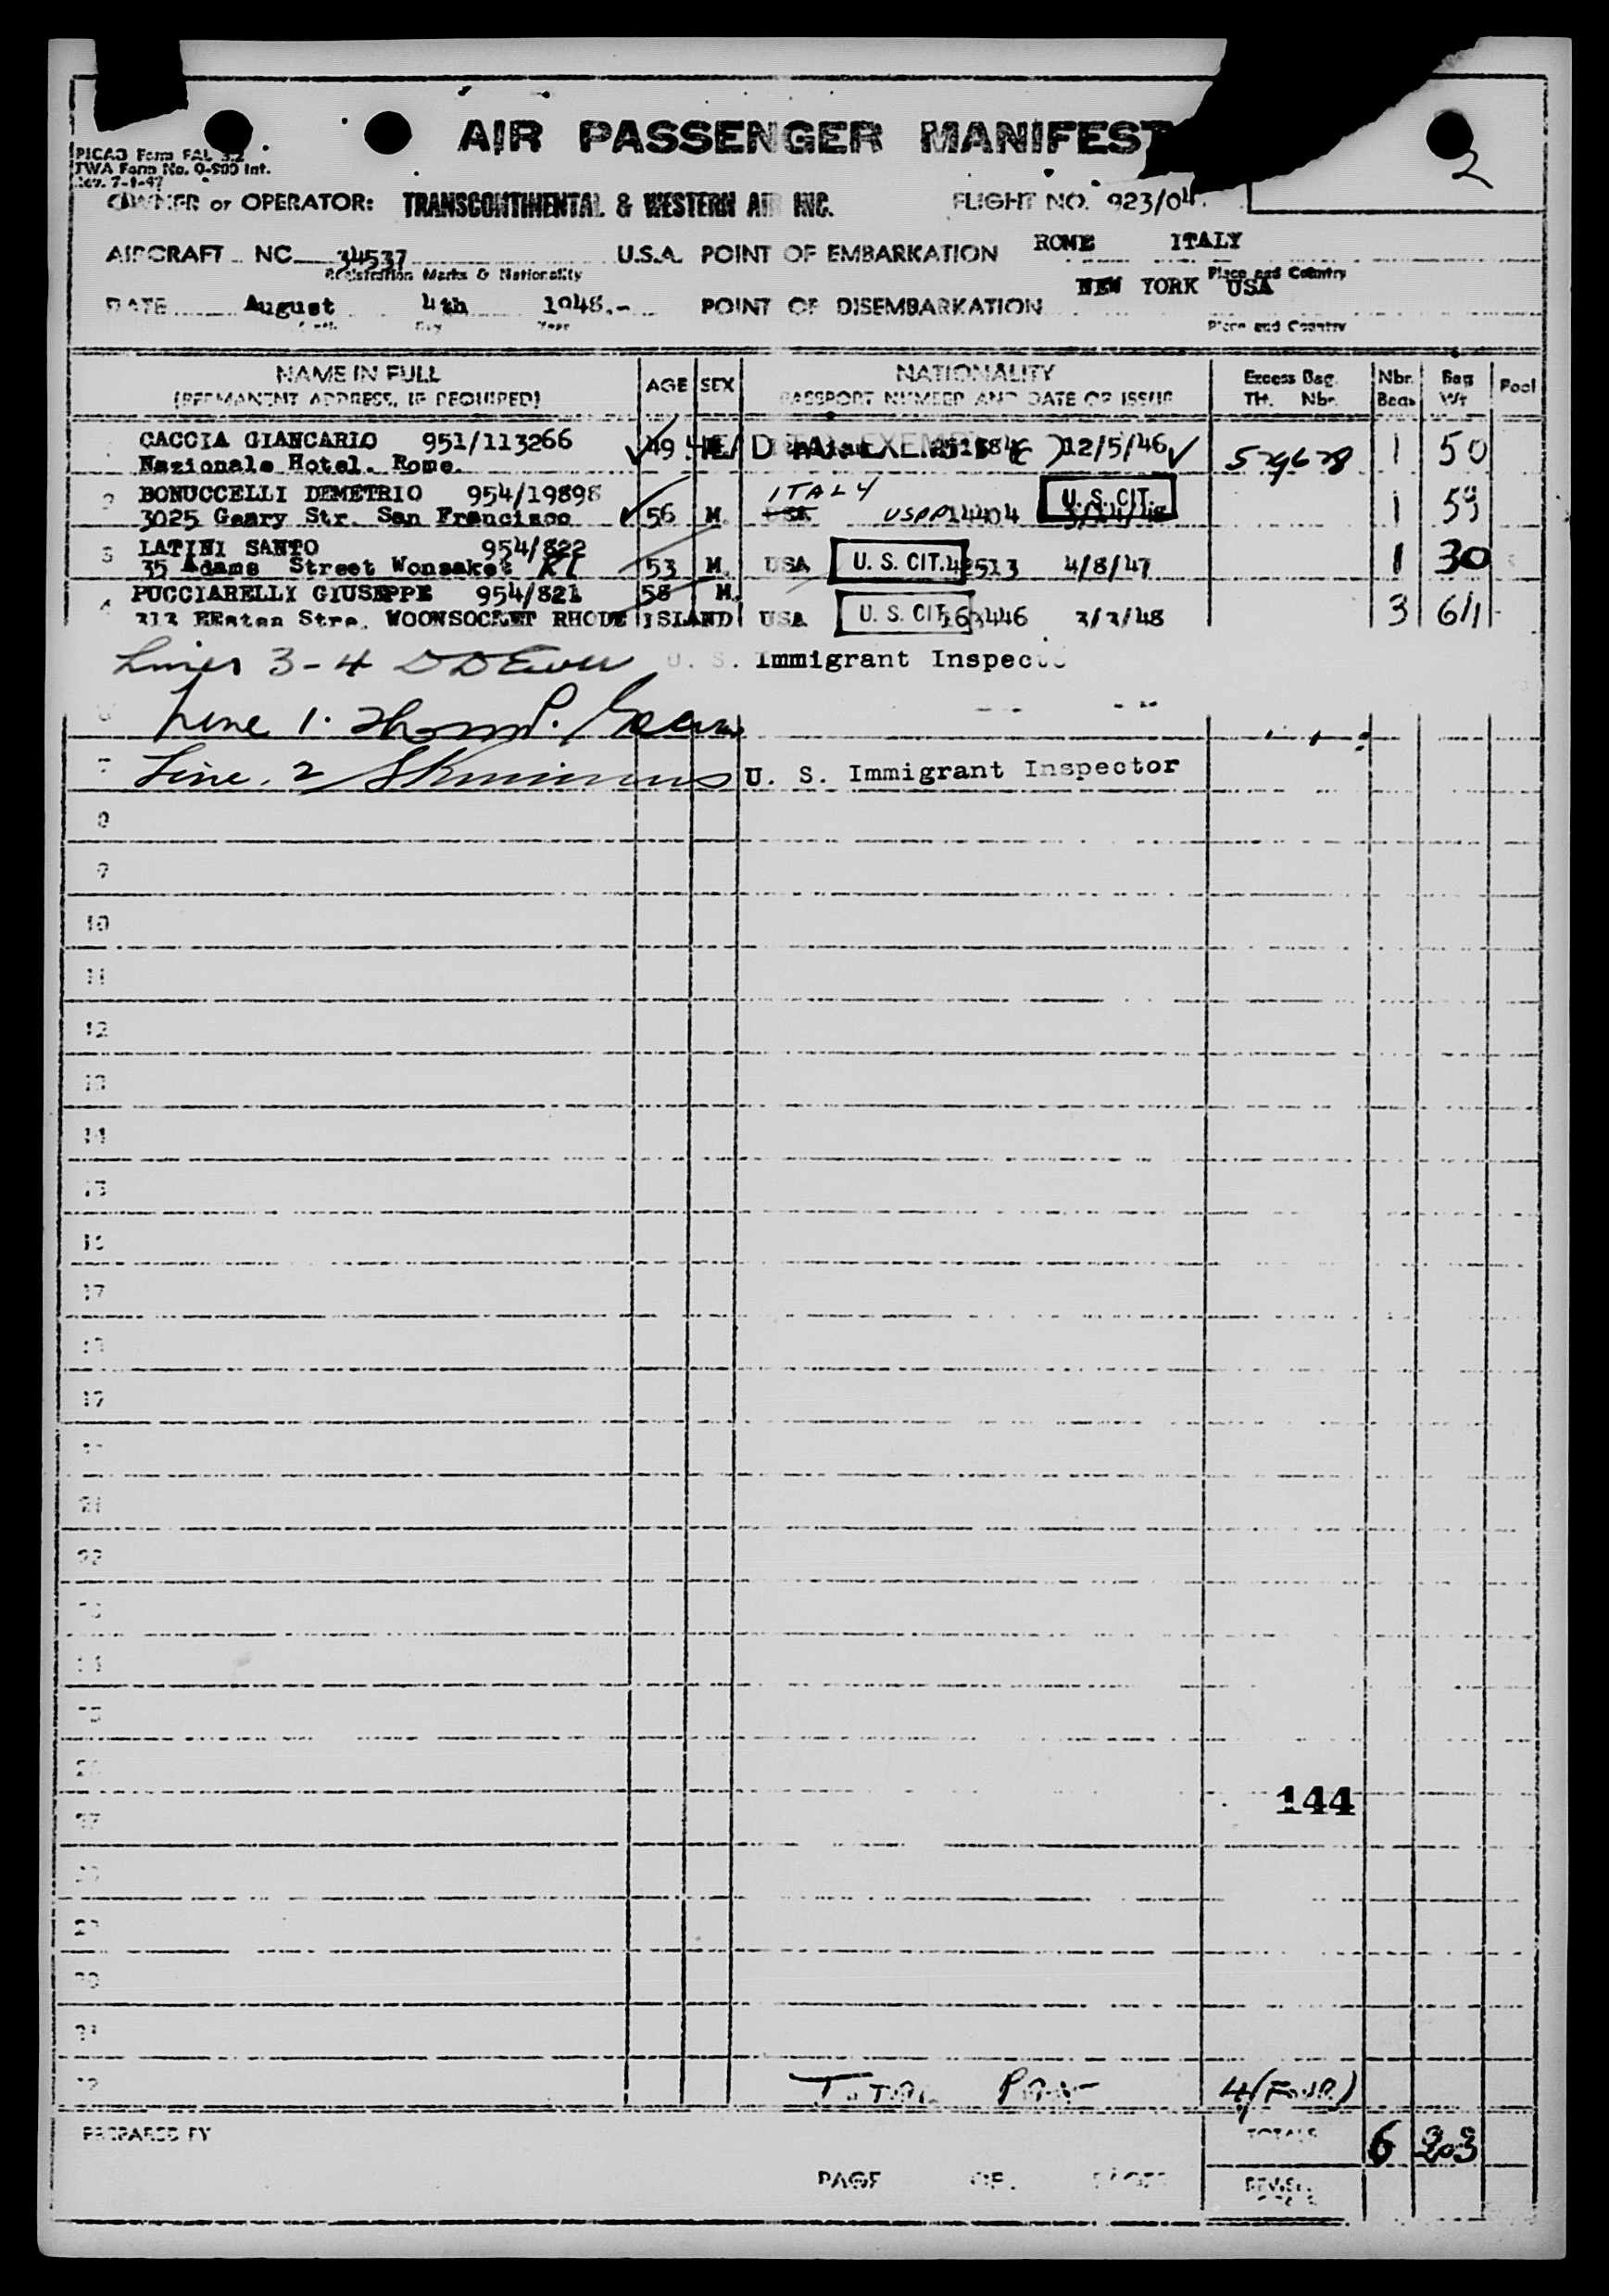 AIR PASSENGER MANIFEST
2
PICAO Form FAL 3.2
TWA Form No. O-900 Int.
Rev. 7-1-47
OWNER or OPERATOR: TRANSCONTINENTAL & WESTERN AIR INC. FLIGHT NO. 923/04.
AIRCRAFT NC 34537 U.S.A. POINT OF EMBARKATION ROME ITALY
Registration Marks & Nationality Place and Country
DATE August 4th 1948.- POINT OF DISEMBARKATION NEW YORK USA
Month Day Year Place and Country
NAME IN FULL AGE SEX NATIONALITY Excess Bag. Nbr. Bag Pool
(PERMANENT ADDRESS, IF REQUIRED) PASSPORT NUMBER AND DATE OF ISSUE Tkt. Nbr. Bags Wt
CACCIA GIANCARLO 951/113266 49 12/5/46 529628 1 50
Nazionale Hotel. Rome.
2 BONUCCELLI DEMETRIO 954/19898 ITALY U. S. CIT.
3025 Geary Str. San Francisco 56 M. USA USPP 14404 1 59
3 LATINI SANTO 954/822
35 Adams Street Wonsaket RI 53 M. USA U. S. CIT. 42513 4/8/47 1 30
4 PUCCIARELLI GIUSEPPE 954/821 58 M.
Stre. WOONSOCKET RHODE ISLAND USA U. S. CIT. 163446 3/3/48 3 64
Lines 3-4 U. S. Immigrant Inspector
Line 1.
7 Line. 2 U. S. Immigrant Inspector
8
9
10
11
12
13
14
15
16
17
18
19
21
22
144
Total Pax 4 (Four)
PREPARED BY TOTALS 6 203
PAGE OF PAGES